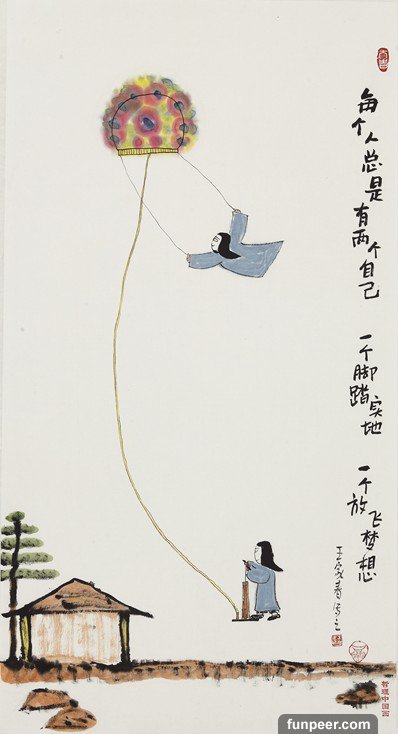 每个人总是有两个自己 一个脚踏实地 一个放飞梦想
王家春写之
哲理中国画
funpeer.com